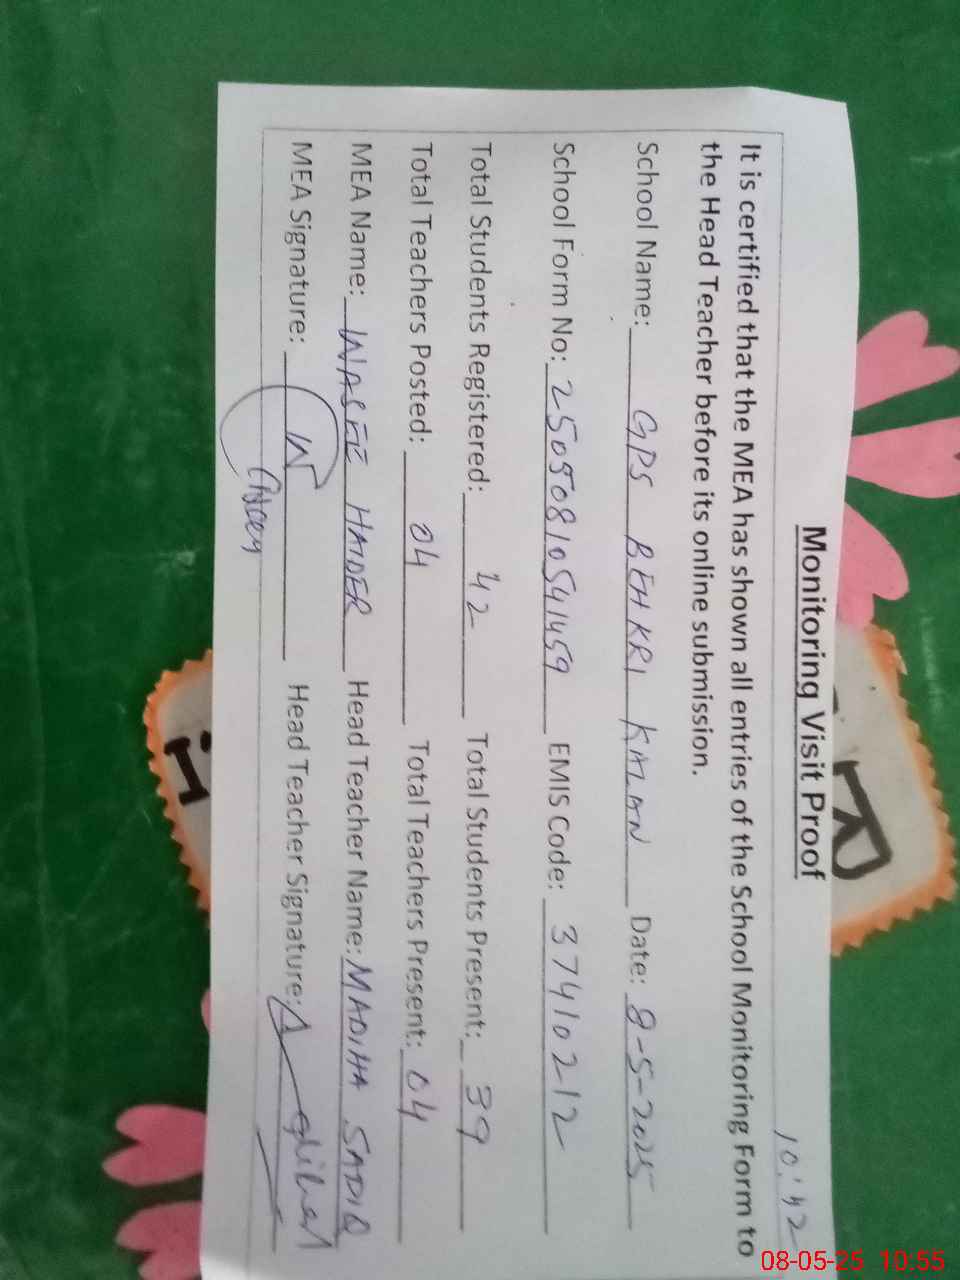 10:42
Monitoring Visit Proof
It is certified that the MEA has shown all entries of the School Monitoring Form to
the Head Teacher before its online submission.
School Name: GPS BEHKRI KALAN Date: 8-5-2025
School Form No: 25050810541459 EMIS Code: 37410212
Total Students Registered: 42 Total Students Present: 39
Total Teachers Posted: 04 Total Teachers Present: 04
MEA Name: WASEE HAIDER Head Teacher Name: MADIHA SADIQ
MEA Signature: Head Teacher Signature:
08-05-25 10:55